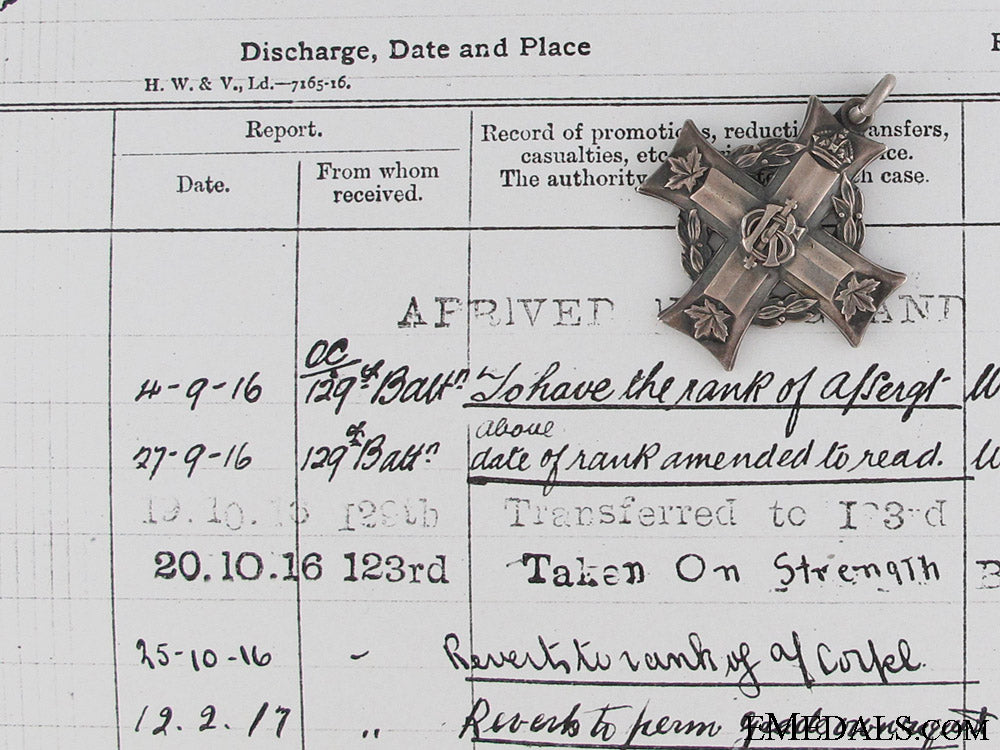 Discharge, Date and Place
H. W. & V., Ld.—7165-16.
Report.
Date.
From whom
received.
Record of promotions, reductions, transfers,
casualties, etc.
The authority
each case.
ARRIVED
4-9-16 OC 129th Battn To have the rank of A/Sergt
27-9-16 129th Battn above date of rank amended to read.
19.10.16 129th Transferred to 123rd
20.10.16 123rd Taken On Strength B
25-10-16 - Reverts to rank of A/Corpl.
12.2.17 " Reverts to perm grade
EMEDALS.COM